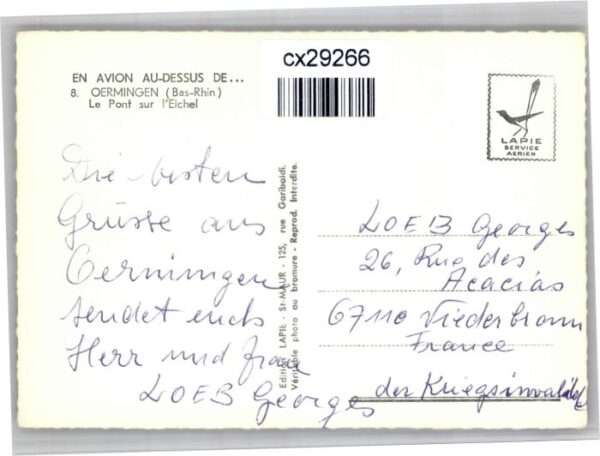 cx29266
EN AVION AU-DESSUS DE...
8. OERMINGEN (Bas-Rhin)
Le Pont sur l'Eichel
LAPIE
SERVICE
AERIEN
Die besten
Grüsse aus
Oermingen
sendet euch
Herr und Frau
LOEB Georges
Edition LAPIE - St-MAUR - 125, rue Garibaldi.
Véritable photo au bromure - Reprod. Interdite.
LOEB Georges
26, Rue des
Acacias
67110 Niederbronn
France
der Kriegsinvalide